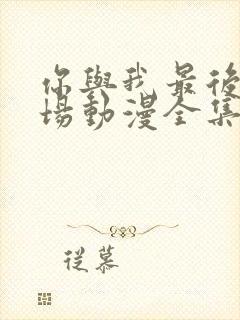 你與我最後
場動漫全集
從慕